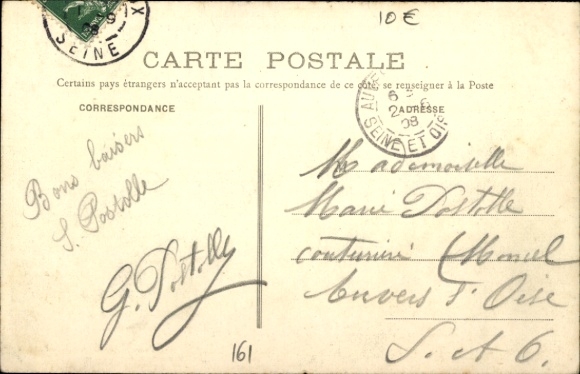 10€
X
9
SEINE
CARTE POSTALE
Certains pays étrangers n'acceptant pas la correspondance de ce côté, se renseigner à la Poste
CORRESPONDANCE
ADRESSE
AUVE
6
2 6
08
SEINE ET OIS
Bons baisers
S. Postolle
G. Postolly
Mademoiselle
Marie Postolle
couturière
Auvers s' Oise
S. et O.
161